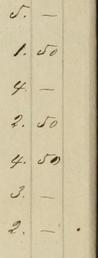 5. —
1. 50
4. —
2. 50
4. 50
3. —
2. —